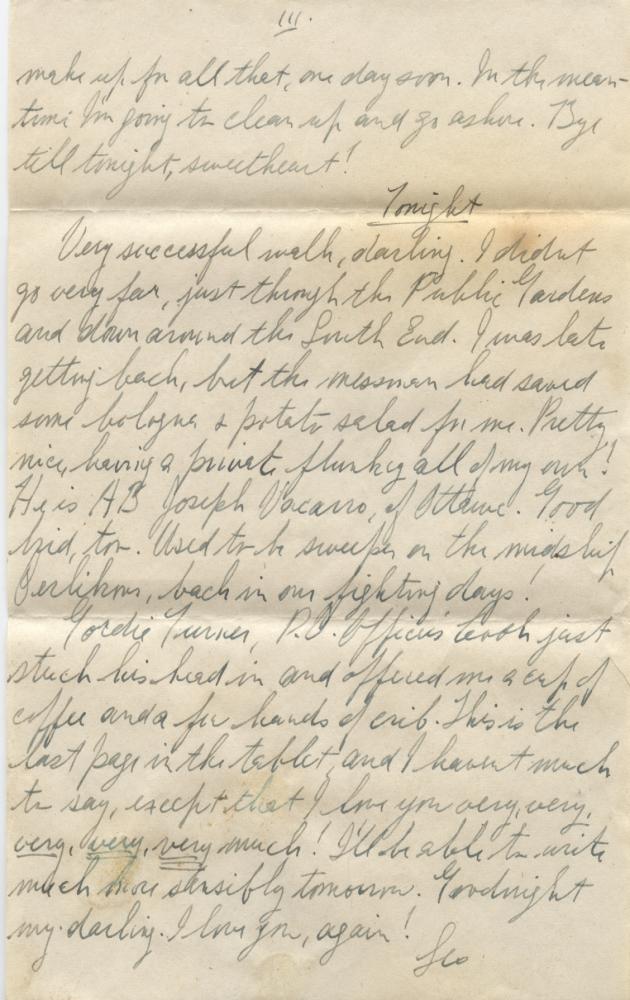 III.
make up for all that, one day soon. In the mean-
time I'm going to clean up and go ashore. Bye
till tonight, sweetheart!
Tonight
Very successful walk, darling. I didn't
go very far, just through the Public Gardens
and down around the South End. I was late
getting back, but the messman had saved
some bologna & potato salad for me. Pretty
nice, having a private flunkey all of my own!
He is AB Joseph Vacarro, of Ottawa. Good
kid, too. Used to be sweeper on the midship
Oerlikons, back in our fighting days!
Gordie Turner, P.O. Officers' Cook just
stuck his head in and offered me a cup of
coffee and a few hands of crib. This is the
last page in the tablet, and I haven't much
to say, except that I love you very, very,
very, very, very much! I'll be able to write
much more sensibly tomorrow. Goodnight
my darling. I love you, again!
Geo